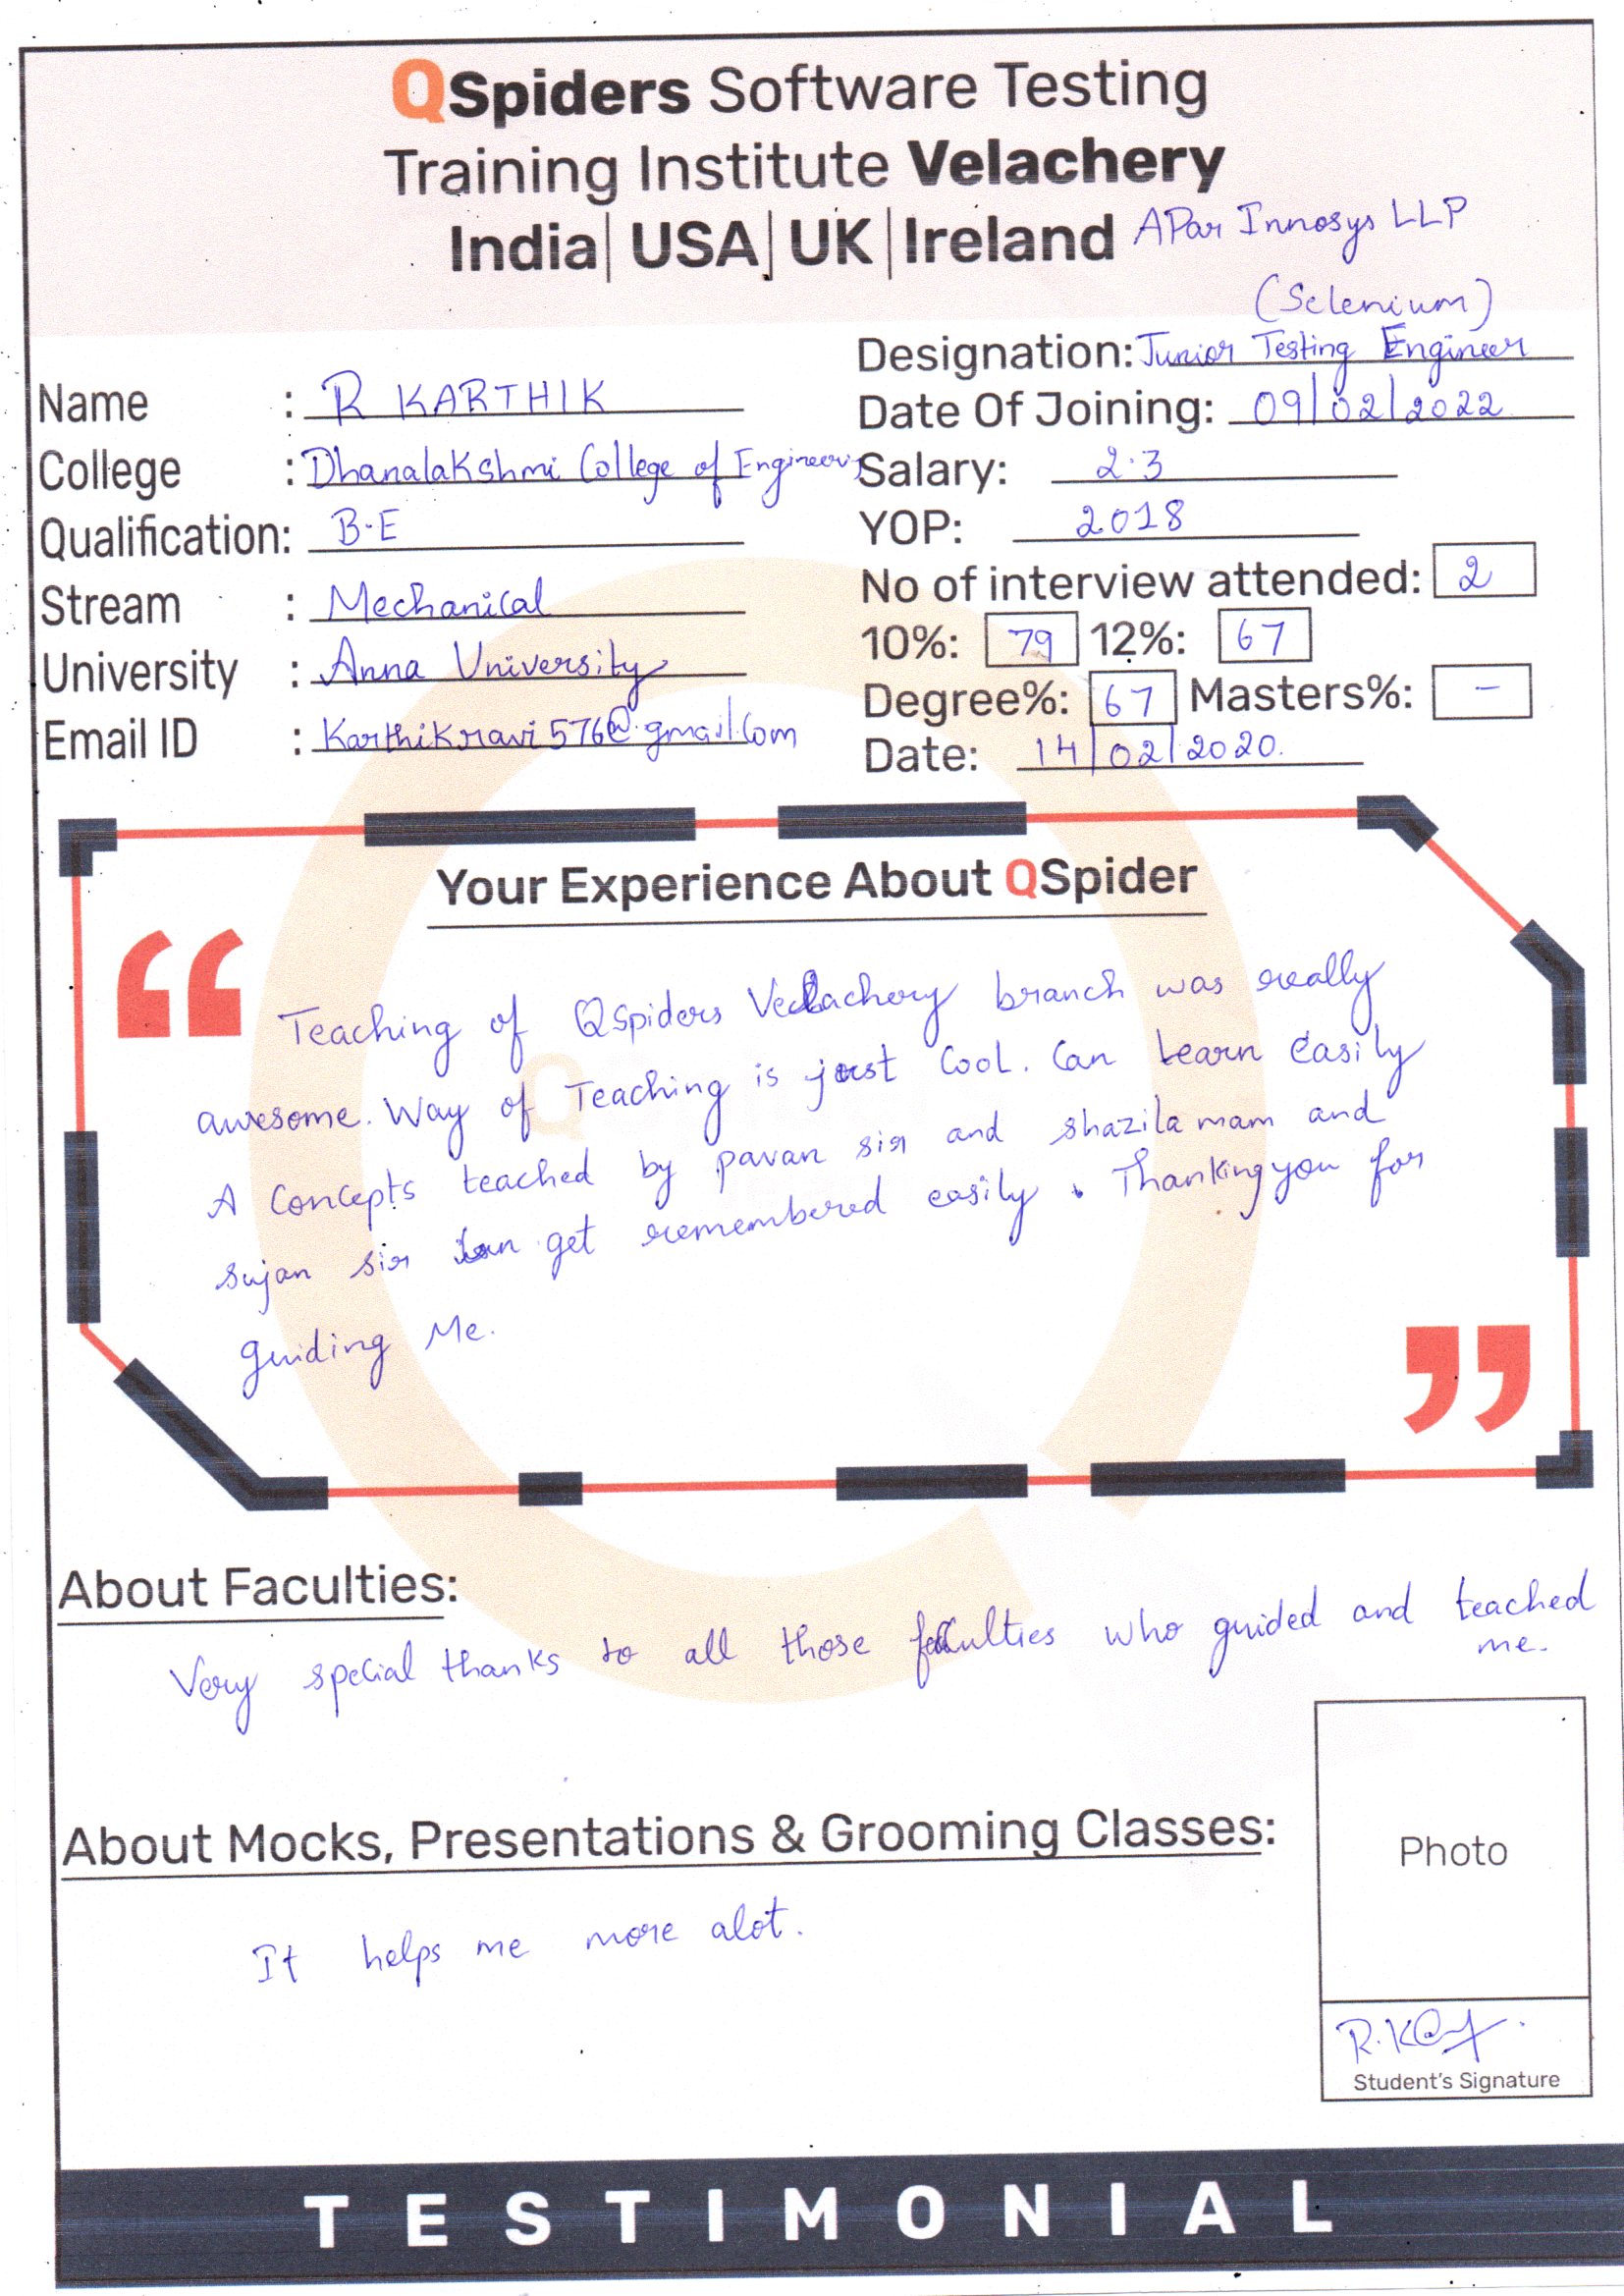 QSpiders Software Testing
Training Institute Velachery
India| USA| UK| Ireland APar Innosys LLP
(Selenium)
Designation: Junior Testing Engineer
Name : R KARTHIK
Date Of Joining: 09/02/2022
College : Dhanalakshmi College of Engineering
Salary: 2.3
Qualification: B.E
YOP: 2018
No of interview attended: 2
Stream : Mechanical
10%: 79 12%: 67
University : Anna University
Degree%: 67 Masters%: -
Email ID : Karthikravi576@gmail.com
Date: 14/02/2020.
Your Experience About QSpider
“ Teaching of QSpiders Velachery branch was really
awesome. Way of Teaching is just Cool. Can Learn easily
A Concepts teached by pavan sir and shazila mam and
sujan sir can get remembered easily. Thanking you for
guiding Me. ”
About Faculties:
Very special thanks to all those faculties who guided and teached
me.
About Mocks, Presentations & Grooming Classes:
It helps me more alot.
Photo
R.K
Student's Signature
TESTIMONIAL